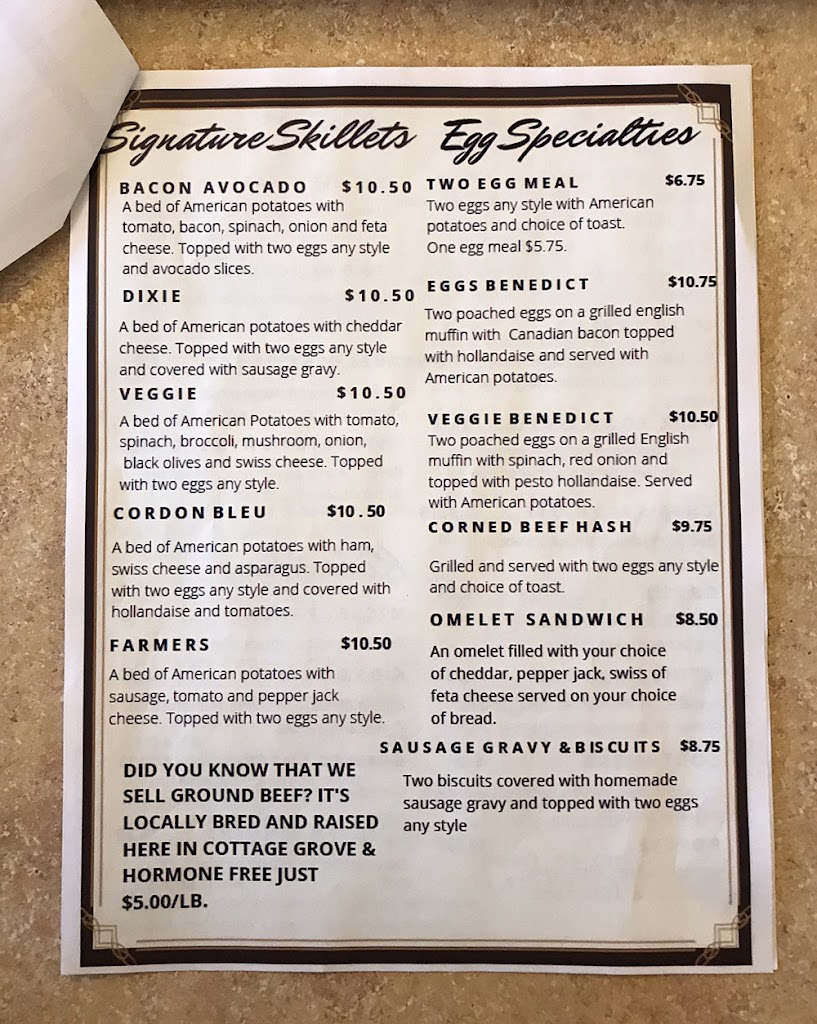 Signature Skillets
BACON AVOCADO $10.50
A bed of American potatoes with
tomato, bacon, spinach, onion and feta
cheese. Topped with two eggs any style
and avocado slices.
DIXIE $10.50
A bed of American potatoes with cheddar
cheese. Topped with two eggs any style
and covered with sausage gravy.
VEGGIE $10.50
A bed of American Potatoes with tomato,
spinach, broccoli, mushroom, onion,
black olives and swiss cheese. Topped
with two eggs any style.
CORDON BLEU $10.50
A bed of American potatoes with ham,
swiss cheese and asparagus. Topped
with two eggs any style and covered with
hollandaise and tomatoes.
FARMERS $10.50
A bed of American potatoes with
sausage, tomato and pepper jack
cheese. Topped with two eggs any style.
DID YOU KNOW THAT WE
SELL GROUND BEEF? IT'S
LOCALLY BRED AND RAISED
HERE IN COTTAGE GROVE &
HORMONE FREE JUST
$5.00/LB.
Egg Specialties
TWO EGG MEAL $6.75
Two eggs any style with American
potatoes and choice of toast.
One egg meal $5.75.
EGGS BENEDICT $10.75
Two poached eggs on a grilled english
muffin with Canadian bacon topped
with hollandaise and served with
American potatoes.
VEGGIE BENEDICT $10.50
Two poached eggs on a grilled English
muffin with spinach, red onion and
topped with pesto hollandaise. Served
with American potatoes.
CORNED BEEF HASH $9.75
Grilled and served with two eggs any style
and choice of toast.
OMELET SANDWICH $8.50
An omelet filled with your choice
of cheddar, pepper jack, swiss of
feta cheese served on your choice
of bread.
SAUSAGE GRAVY & BISCUITS $8.75
Two biscuits covered with homemade
sausage gravy and topped with two eggs
any style